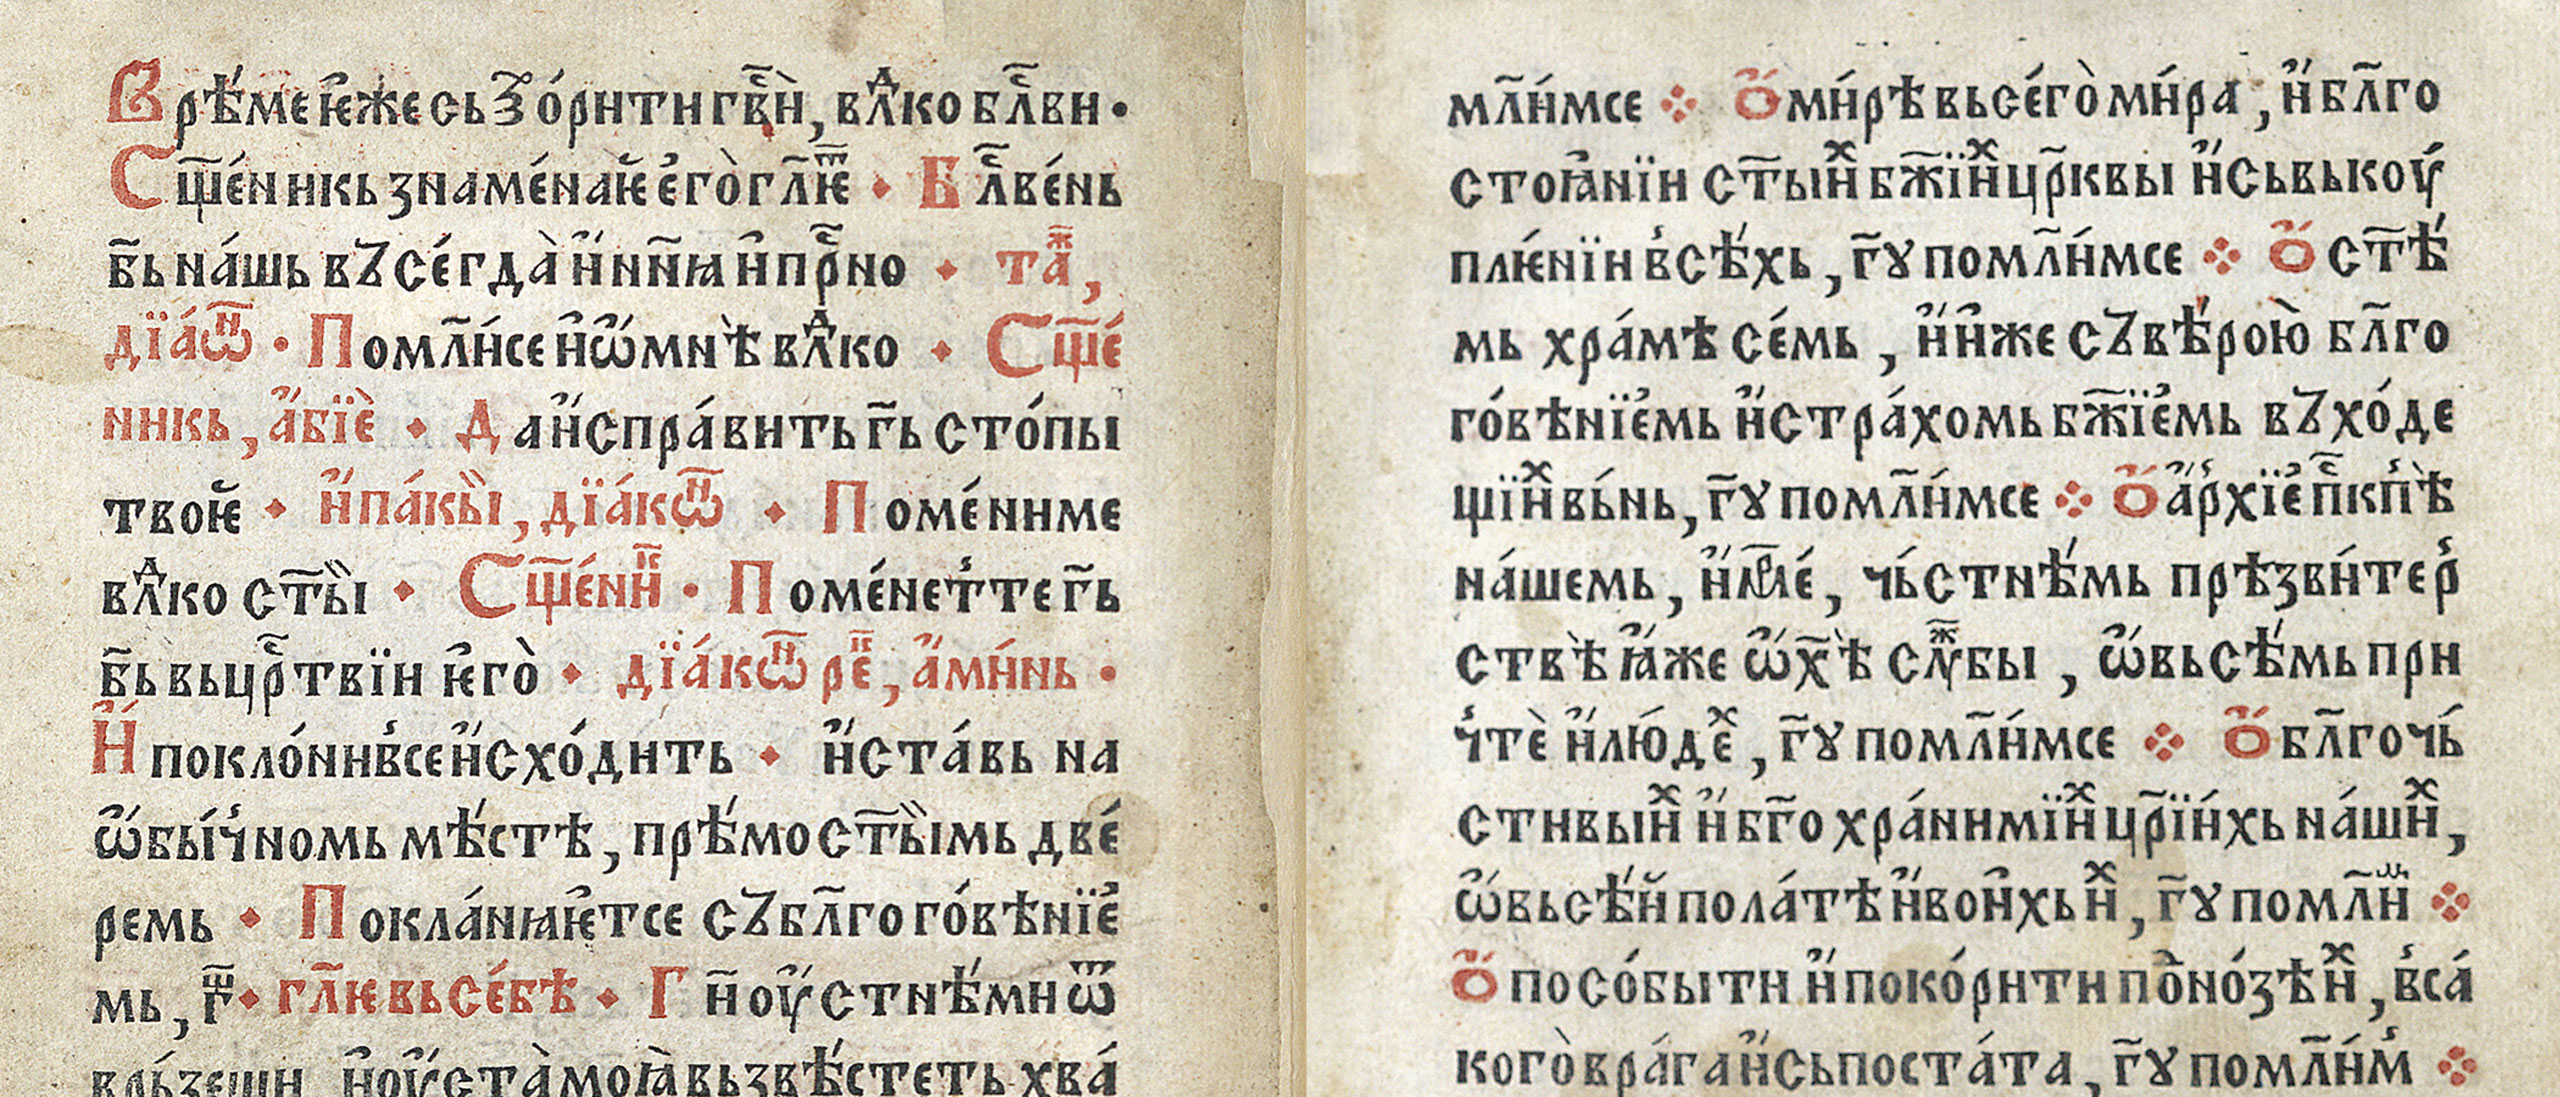 Врѣ́ме ѥ҆́же сьꙁо́рити гв҃и҆̀, влⷣко блⷭ҇ви •
Сщ҃е́никь знаме́наѥ҆ е҆го̀ гл҃ѥ • Блⷭ҇ве́нь
б҃ь на́шь вꙋсе́гда̀ и҆ нн҃ꙗ и҆ прⷭ҇но • таⷤ,
дїа́ѡⷩ҇ • Помл҃и́се и҆ ѡ҆́ мнѣ̀ влⷣко • Сщ҃е́
никь, а҆́бїѐ • Да и҆спра́вить г҃ь сто́пы
твоѥ̀ • и҆ па́кы̀, дїа́кѡⷩ҇ • Поме́ниме
влⷣко ст҃ы̀ • Сщ҃е́ниⷦ҇ • Поме́нет҆ те г҃ь
б҃ь вь црⷭ҇твїи ѥ҆го̀ • дїа́кѡⷩ҇ реⷱ҇, а҆ми́нь •
И҆ покло́нив҆се и҆схо́дить • и҆ ста́вь на
ѡ҆бы́ч҆номь мѣ́стѣ, прѣ́мо ст҃ы̀мь две́
ремь • Покла́нꙗѥ҆тсе сꙋ бл҃гого́вѣнїе҆
мь, г҃ⷳ • гл҃ѥ вь се́бѣ • Гн҃и ѹ҆стнѣ́ми ѿ
врь́зеши и҆ ѹ҆ста̀ моꙗ҆̀ вьзвѣ́стеть хва́
мл҃и́мсе ❖ Ѻ҆ ми́рѣ вьсе́го̀ ми́ра, и҆ бл҃го
стоꙗ҆́нїи ст҃ыиⷯ бж҃їиⷯ цр҃квы и҆ сьвькѹ́
плѥ́нїи в҆сѣ́хь, г҃ꙋ помл҃и́мсе ❖ Ѻ҆ ст҃ѣ́
мь хра́мѣ се́мь, и҆ и҆же сꙋ вѣ́рою̀ бл҃го
го́вѣнїе҆мь и҆ стра́хомь бж҃їе҆мь вꙋхо́де
щїиⷯ вь́нь, г҃ꙋ помл҃и́мсе ❖ Ѻ҆ а҆рхїе҆пⷭ҇кп҆ѣ̀
на́шемь, и҆мⷬ҇е́, чь́стнѣ́мь прѣзви́тер҆
ствѣ̀ ꙗ҆́же ѡ҆ х҃ѣ̀ слꙋⷤбы, ѡ҆ вьсѣ́мь при
ч҆тѐ и҆ лю́деⷯ, г҃ꙋ помл҃и́мсе ❖ Ѻ҆ бл҃гочь́
стивыиⷯ и҆ бг҃охра́нимїиⷯ цр҃їи́хь на́шиⷯ,
ѡ҆ вьсѣ́и пола́тѣ и҆ вои҆хь иⷯ, г҃ꙋ помл҃иⷨ ❖
Ѻ҆ посо́быти и҆ поко́рити поⷣ но́зѣ иⷯ, в҆са́
кого̀ вра́га и҆ сьпоста́та, г҃ꙋ помл҃и́м҆ ❖